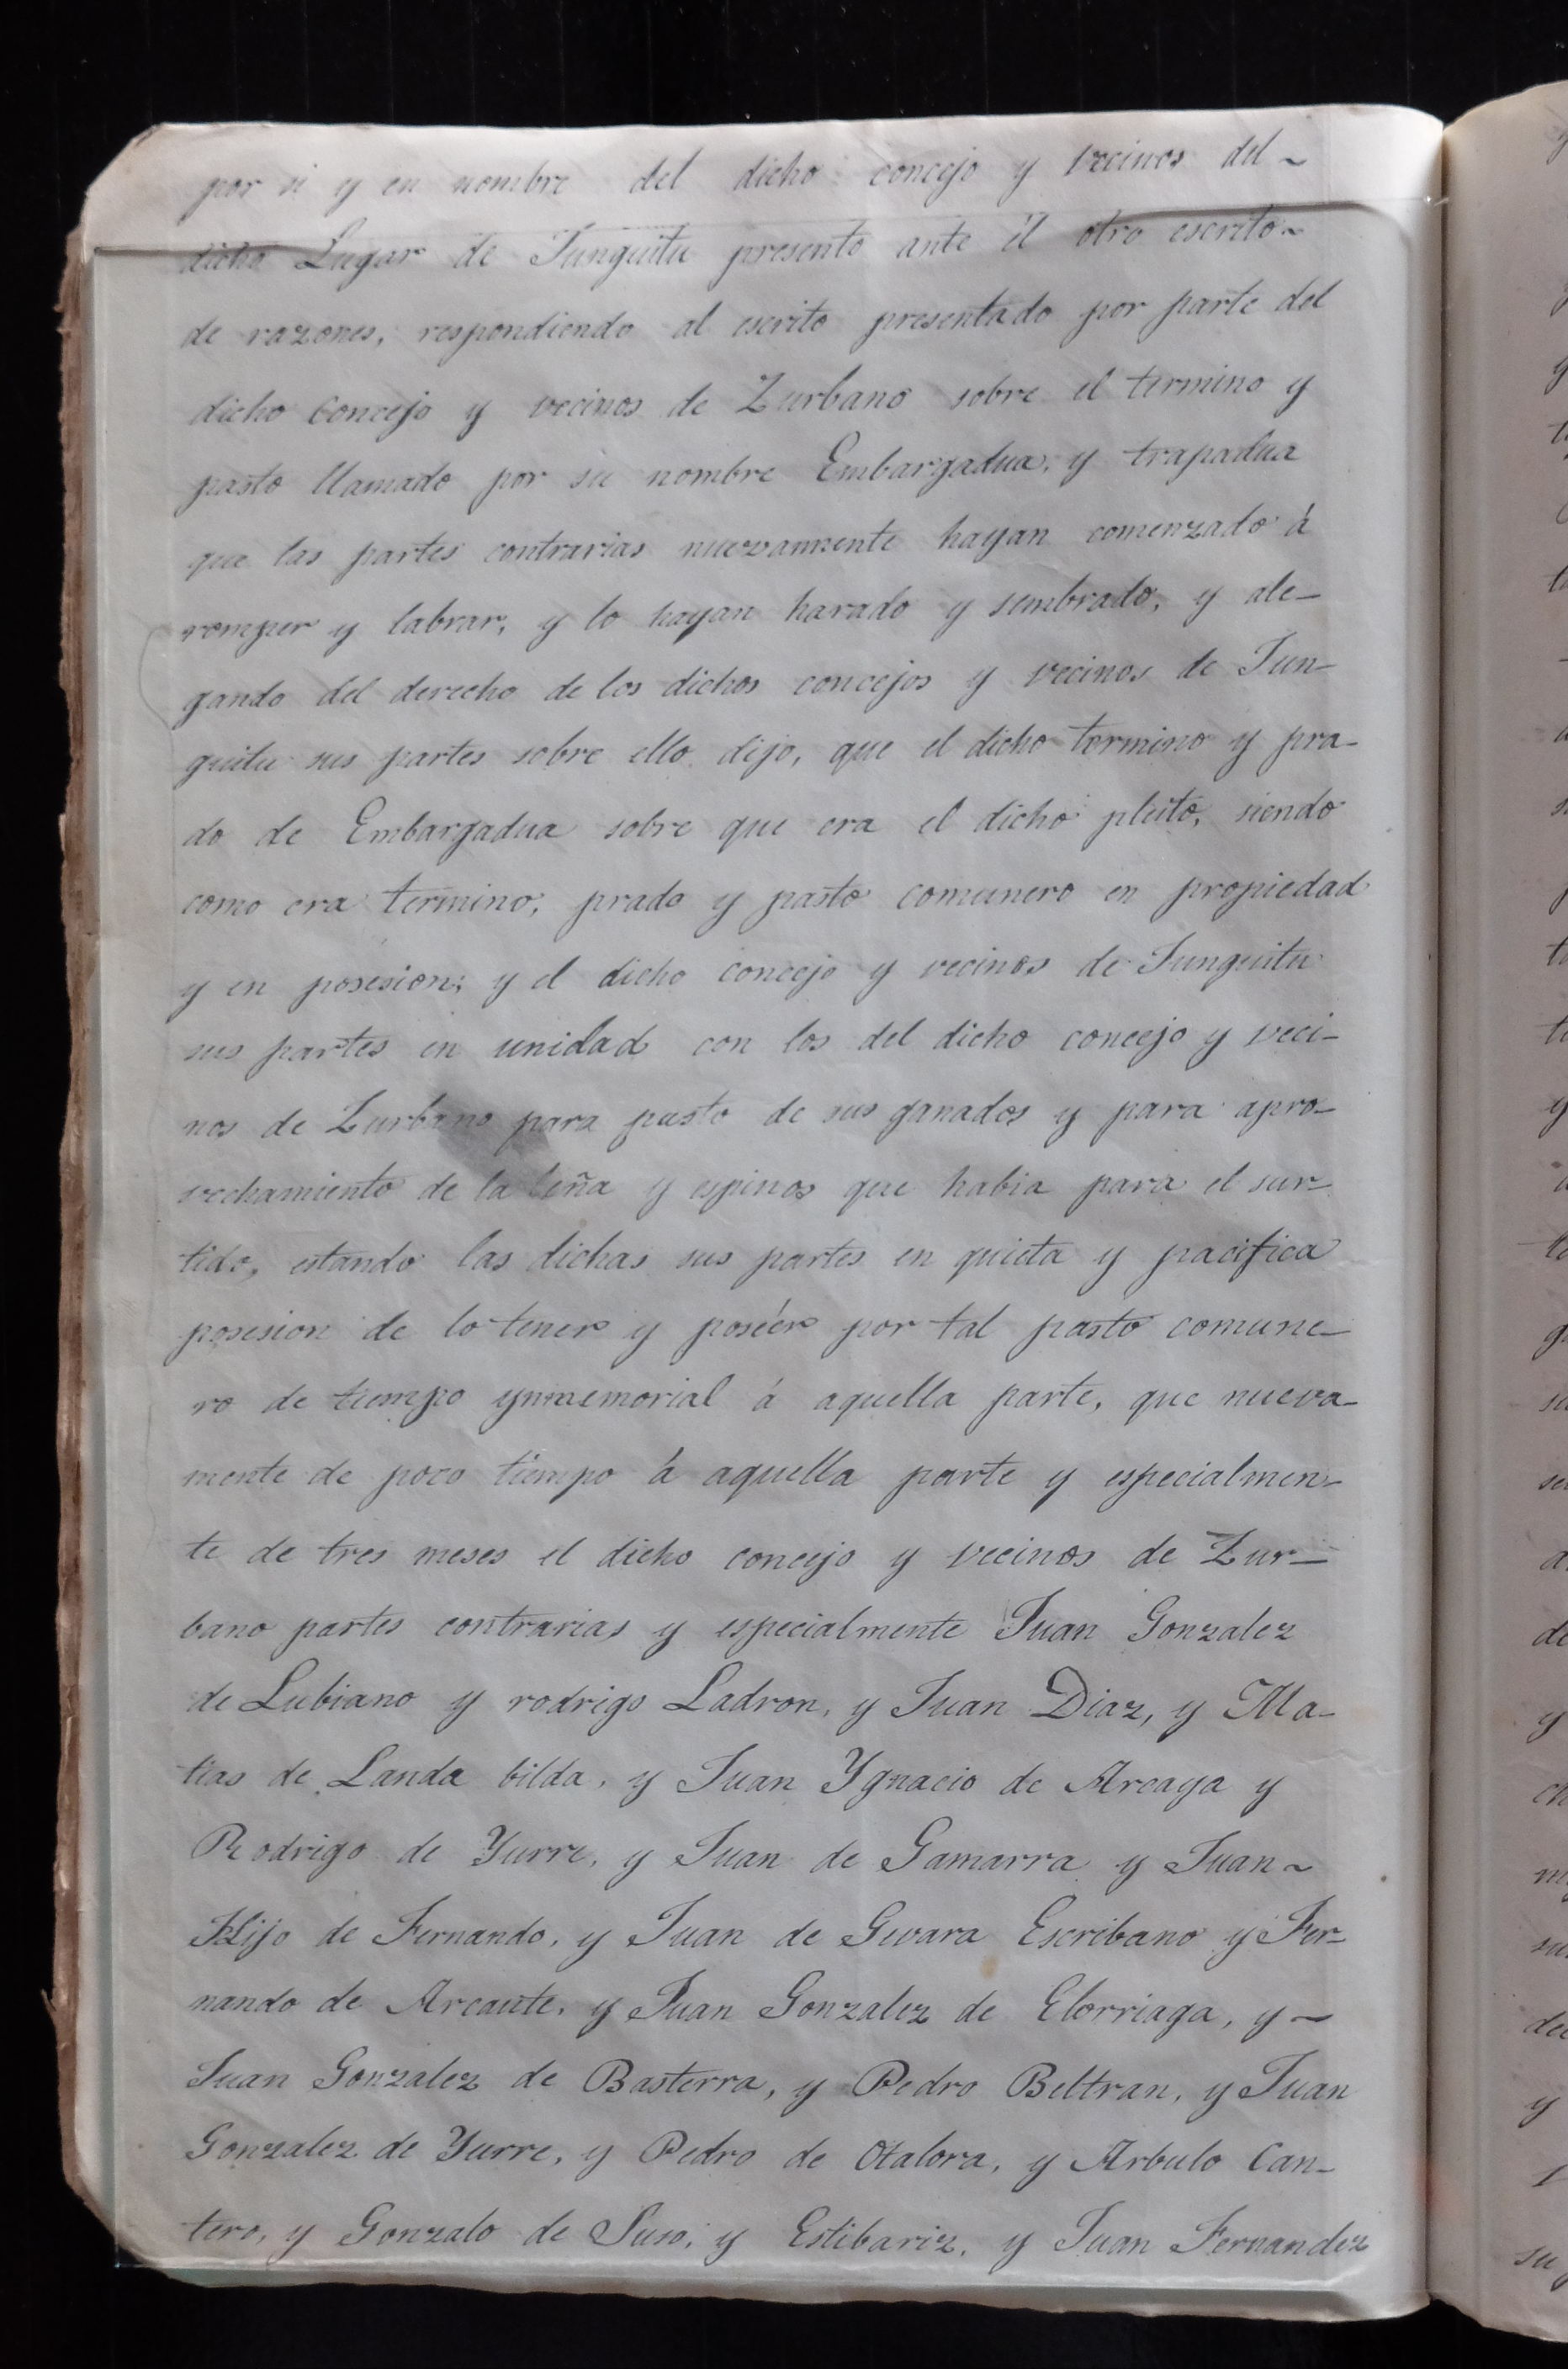 por si y en nombre del dicho concejo y vecinos del~
dicho Lugar de Junguitu presento ante él otro escrito~
de razones, respondiendo al escrito presentado por parte del
dicho concejo y vecinos de Zurbano sobre el termino y
pasto llamado por su nombre Embargadua, y trapadua
que las partes contrarias nuevamente hayan comenzado à
romper y labrar, y lo hayan harado y sembrado, y ale-
gando del derecho de los dichos concejos y vecinos de Jun-
guitu sus partes sobre ello dijo, que el dicho termino y pra-
do de Embargadua sobre que era el dicho pleito, siendo
como era termino, prado y pasto comunero en propiedad
y en posesion; y el dicho concejo y vecinos de Junguitu
sus partes en unidad con los del dicho concejo y veci-
nos de Zurbano para pasto de sus ganados y para apro-
vechamiento de la leña y espinos que habia para el sur-
tido, estando las dichas sus partes en quieta y pacifica
posesion de lo tener y poséer por tal pasto comune-
ro de tiempo ynmemorial á aquella parte, que nueva-
mente de poco tiempo à aquella parte y especialmen-
te de tres meses el dicho concejo y vecinos de Zur-
bano partes contrarias y especialmente Juan Gonzalez
de Lubiano y rodrigo Ladron, y Juan Diaz, y Ma-
tias de Landa bilda, y Juan Ygnacio de Arcaya y
Rodrigo de Yurre, y Juan de Gamarra y Juan~
Hijo de Fernando, y Juan de Gevara Escribano y Fer-
nando de Arcaute, y Juan Gonzalez de Elorriaga, y~
Juan Gonzalez de Basterra, y Pedro Beltran, y Juan
Gonzalez de Yurre, y Pedro de Otalora, y Arbulo Can-
tero, y Gonzalo de Suso, y Estibariz, y Juan Fernandez